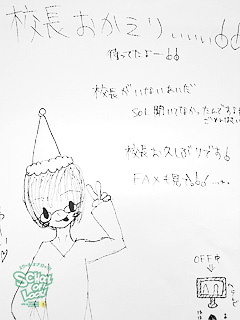 校長おかえりぃぃぃ66
待ってたよー66
校長がいないあいだ
SOL聞いてなかったんですよ
ごめんなさい
校長お久しぶりです6
FAXも見た66 ……
OFF中
SCHOOL OF LOCK!